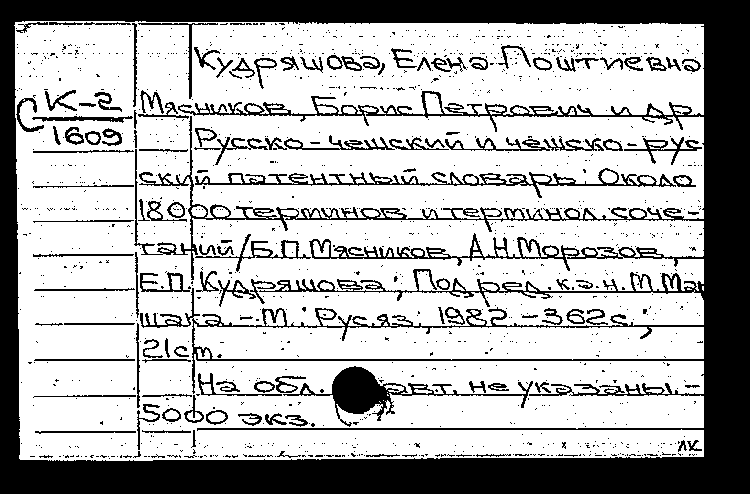 Кудряшова, Елена Поштиевна
С К-2
1609
Мясников, Борис Петрович и др.
Русско-чешский и чешско-рус-
ский патентный словарь: Около
18000 терминов и терминол. соче-
таний/Б.П.Мясников, А.Н.Морозов,
Е.П. Кудряшова; Под ред. к.э.н. М.Мар
шака. - М.: Рус.яз., 1982. - 362с.;
21 ст.
На обл. авт. не указаны. -
5000 экз.
лк